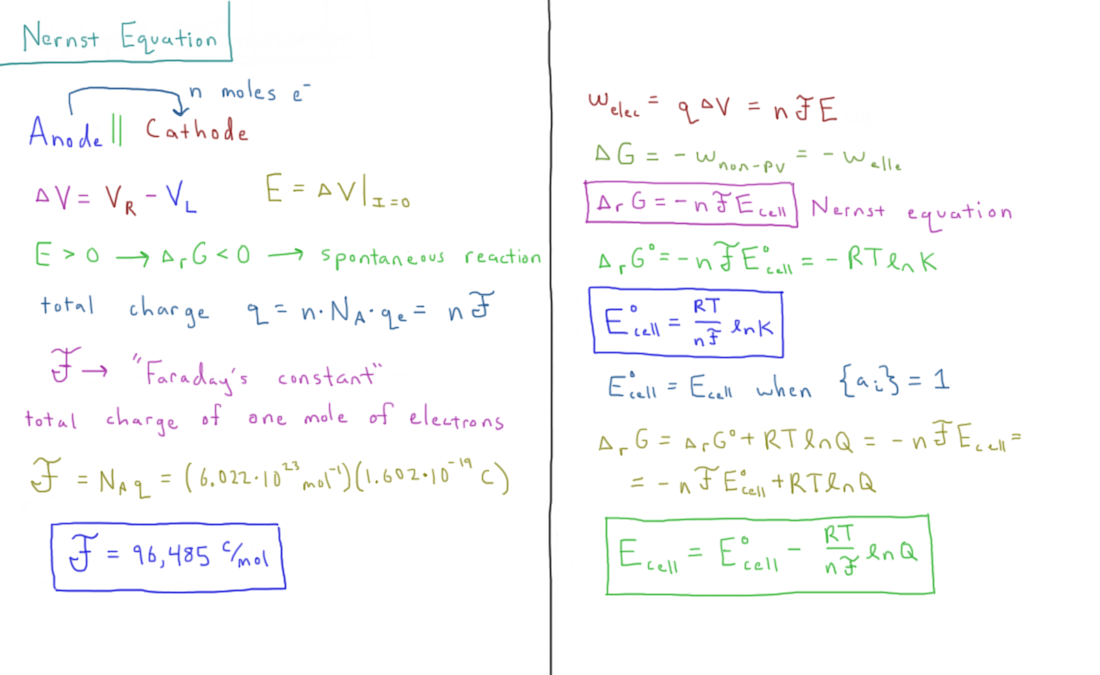 Nernst Equation
n moles e⁻
Anode || Cathode
ΔV = V_R - V_L   E = ΔV|_I=0
E > 0 → Δ_rG < 0 → spontaneous reaction
total charge q = n·N_A·q_e = nℱ
ℱ → "Faraday's constant"
total charge of one mole of electrons
ℱ = N_A q = (6.022·10²³ mol⁻¹)(1.602·10⁻¹⁹ C)
ℱ = 96,485 C/mol
w_elec = qΔV = nℱE
ΔG = -w_non-PV = -w_elle
Δ_rG = -nℱE_cell Nernst equation
Δ_rG° = -nℱE°_cell = -RT ln K
E°_cell = RT/nℱ ln K
E°_cell = E_cell when {a_i} = 1
Δ_rG = Δ_rG° + RT ln Q = -nℱE_cell =
= -nℱE°_cell + RT ln Q
E_cell = E°_cell - RT/nℱ ln Q